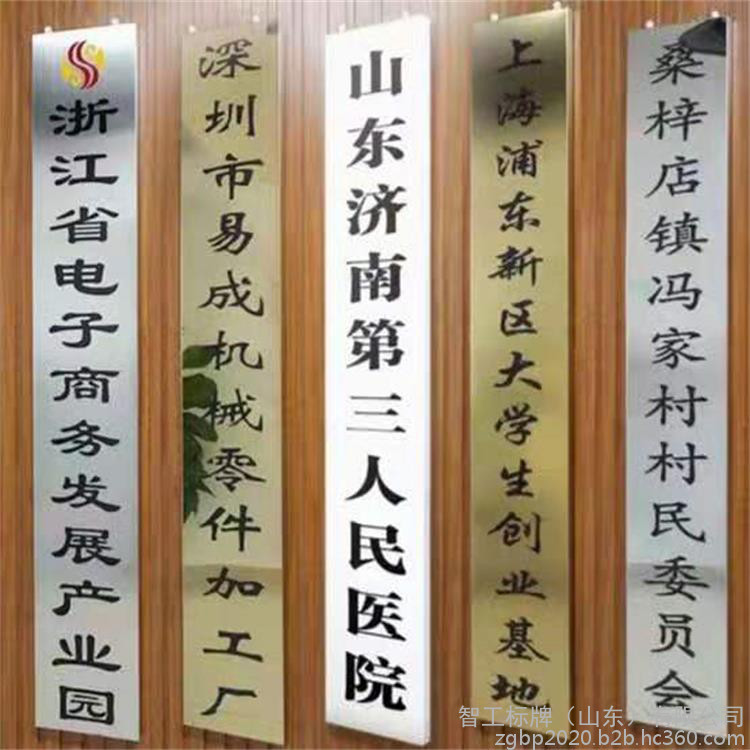 浙江省电子商务发展产业园
深圳市易成机械零件加工厂
山东济南第三人民医院
上海浦东新区大学生创业基地
桑梓店镇冯家村村民委员会
智工标牌（山东）有限公司
zgbp2020.b2b.hc360.com